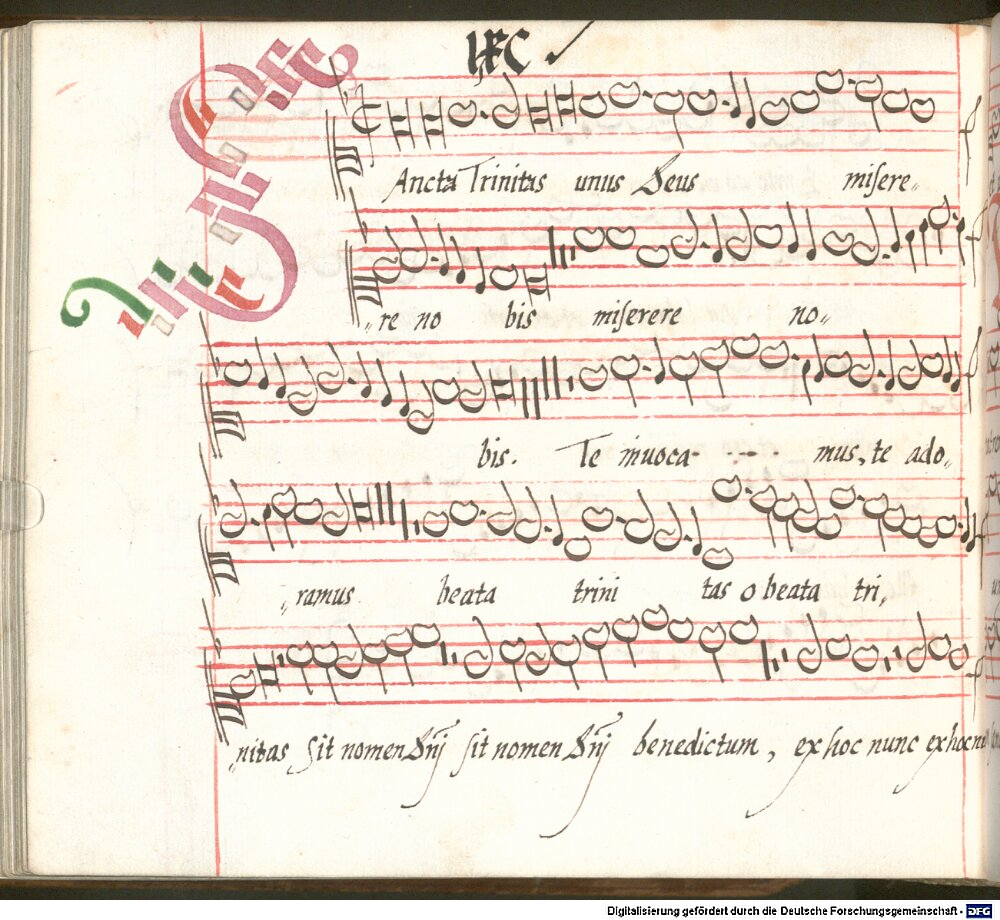 SAncta Trinitas unus Deus misere„
„re no bis miserere no„
bis. Te inuoca- - - - mus, te ado„
„ramus beata trini tas o beata tri„
„nitas sit nomen Dnĩ sit nomen Dnĩ benedictum, ex hoc nunc ex hoc
Digitalisierung gefördert durch die Deutsche Forschungsgemeinschaft - DFG